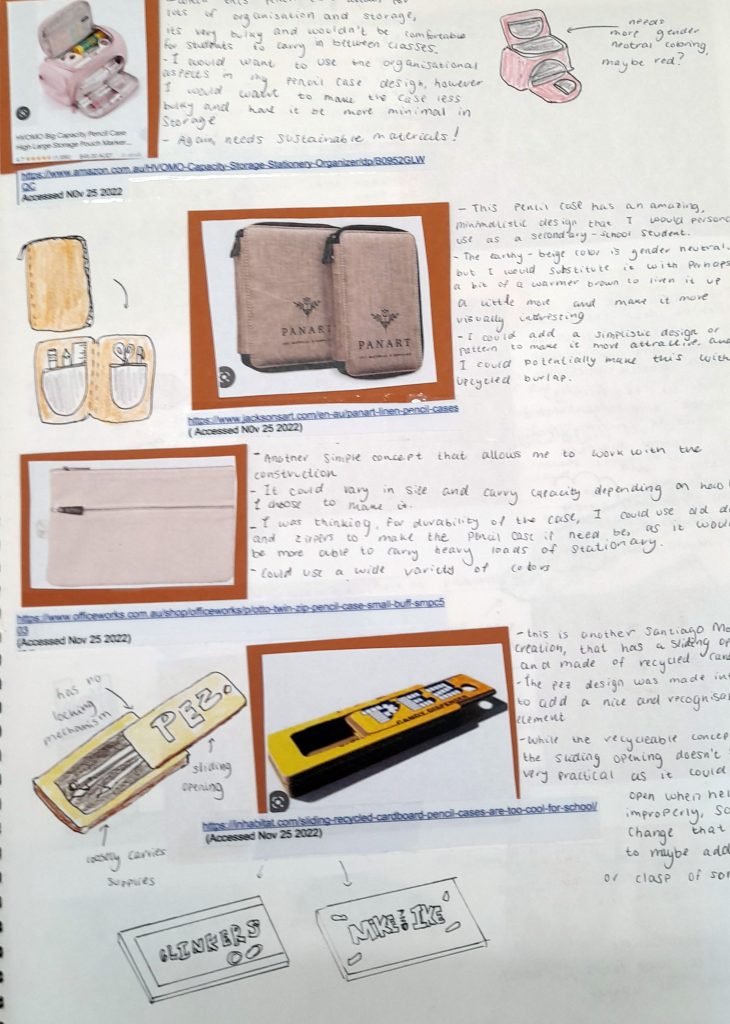 lots of organisation and storage,
its very bulky and wouldn't be comfortable
for students to carry in between classes.
- I would want to use the organisational
aspects in my pencil case design, however
I would want to make the case less
bulky and have it be more minimal in
storage
- Again, needs sustainable materials!
needs
more gender
neutral coloring,
maybe red?
HVOMO Big Capacity Pencil Case
High Large Storage Pouch Marker...
https://www.amazon.com.au/HVOMO-Capacity-Storage-Stationery-Organizer/dp/B0952GLW
QC
Accessed N0v 25 2022
- This pencil case has an amazing,
minimalistic design that I would
use as a secondary-school student.
- The earthy-beige color is gender neutral,
but I would substitute it with perhaps
a bit of a warmer brown to liven it up
a little more and make it more
visually interesting
- I could add a simplistic design or
pattern to make it more attractive, and
I could potentially make this with
upcycled burlap.
PANART
PANART
https://www.jacksonsart.com/en-au/panart-linen-pencil-cases
( Accessed N0v 25 2022)
- Another simple concept that allows me to work with the
construction
- It could vary in size and carry capacity depending on how
I choose to make it.
- I was thinking, for durability of the case, I could use old
and zippers to make the pencil case if need be, as it would
be more able to carry heavy loads of stationary.
- Could use a wide variety of colors
https://www.officeworks.com.au/shop/officeworks/p/otto-twin-zip-pencil-case-small-buff-smpc5
03
(Accessed Nov 25 2022)
- this is another Santiago
creation, that has a sliding
and made of recycled
- The pez design was made
to add a nice and
element
- While the recycleable
the sliding opening doesn't
very practical as it could
open when
improperly, so
change that
to maybe add
or clasp of
has no
locking
mechanism
PEZ.
sliding
opening
loosely carries
supplies
CANDY DISPENSER
https://inhabitat.com/sliding-recycled-cardboard-pencil-cases-are-too-cool-for-school/
(Accessed Nov 25 2022)
CLINKERS
MIKE AND IKE